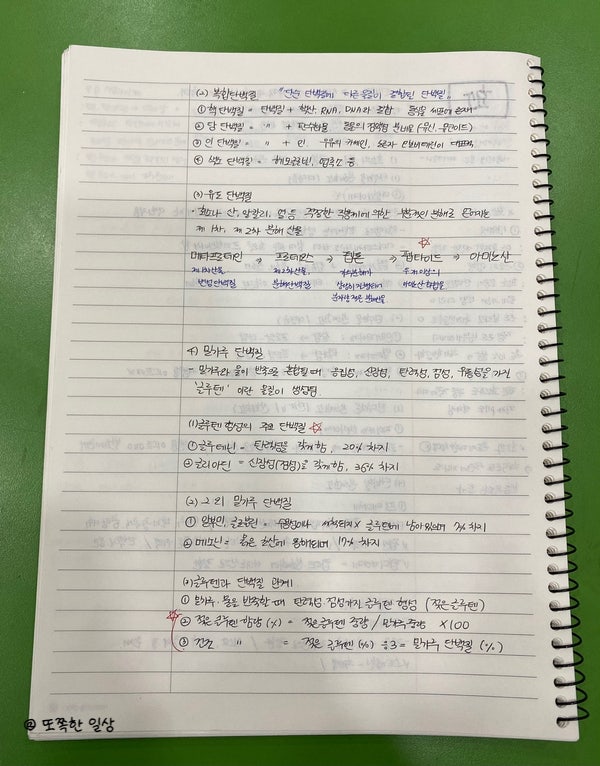 (2) 복합단백질 "단순 단백질에 다른 물질이 결합된 단백질"
① 핵 단백질 = 단백질 + 핵산, RNA, DNA와 결합 동식물 세포에 존재
② 당 단백질 = 〃 + 탄수화물 동물의 점액성 분비물 (뮤신, 뮤코이드)
③ 인 단백질 = 〃 + 인 우유의 카제인, 노른자 오보비텔린이 대표적
④ 색소 단백질 = 헤모글로빈, 엽록소 등
(3) 유도 단백질
- 효소나 산, 알칼리, 열 등 적절한 작용제에 의한 부분적인 분해로 얻어지는
제 1차, 제 2차 분해 산물
메타프로테인 → 프로테오스 → 펩톤 → 펩타이드 → 아미노산
제1차산물, 제2차산물,
변성단백질 분해단백질
분자량 적은 분해산물 아미노산 화합물
4) 밀가루 단백질
- 밀가루와 물이 반죽으로 혼합될 때 응집성, 신장성, 탄력성, 점성, 유동성을 가진
'글루텐' 이란 물질이 생성됨
(1) 글루텐 형성의 주요 단백질 ☆
① 글루테닌 = 탄력성을 갖게 함, 20% 차지
② 글리아딘 = 신장성(점성)을 갖게 함, 36% 차지
(2) 그 외 밀가루 단백질
① 알부민, 글로불린 = 수용성이나 세척되지 X 글루텐에 남아있으며 7% 차지
② 메소닌 = 묽은 초산에 용해되며 17% 차지
(3) 글루텐과 단백질 관계
① 밀가루, 물을 반죽할 때 탄력성 점성가진 글루텐 형성 (젖은 글루텐)
② 젖은 글루텐 함량 (%) = 젖은 글루텐 중량 / 밀가루 중량 X 100
③ 건조 〃 = 젖은 글루텐 (%) ÷ 3 = 밀가루 단백질 (%)
@ 또쪽한 일상